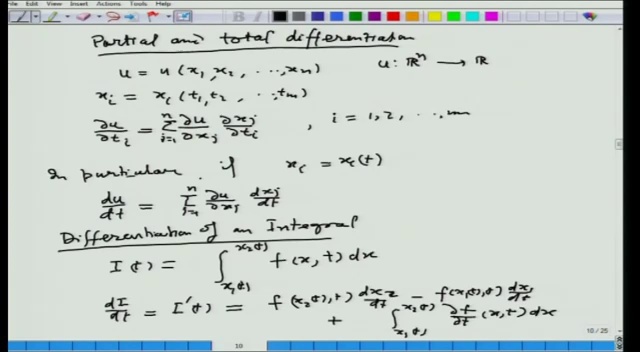 File Edit View Insert Actions Tools Help
Partial and total differentiation
u = u(x₁, x₂, ..., xₙ)    u: ℝⁿ → ℝ
xᵢ = xᵢ(t₁, t₂, ..., tₘ)
∂u/∂tᵢ = Σⱼ₌₁ⁿ ∂u/∂xⱼ ∂xⱼ/∂tᵢ , i = 1, 2, ..., m
In particular, if xᵢ = xᵢ(t)
du/dt = Σⱼ₌₁ⁿ ∂u/∂xⱼ dxⱼ/dt
Differentiation of an Integral
I(t) = ∫_{x₁(t)}^{x₂(t)} f(x,t) dx
dI/dt = I'(t) = f(x₂(t),t) dx₂/dt − f(x₁(t),t) dx₁/dt
+ ∫_{x₁(t)}^{x₂(t)} ∂f/∂t (x,t) dx
10 / 25
10